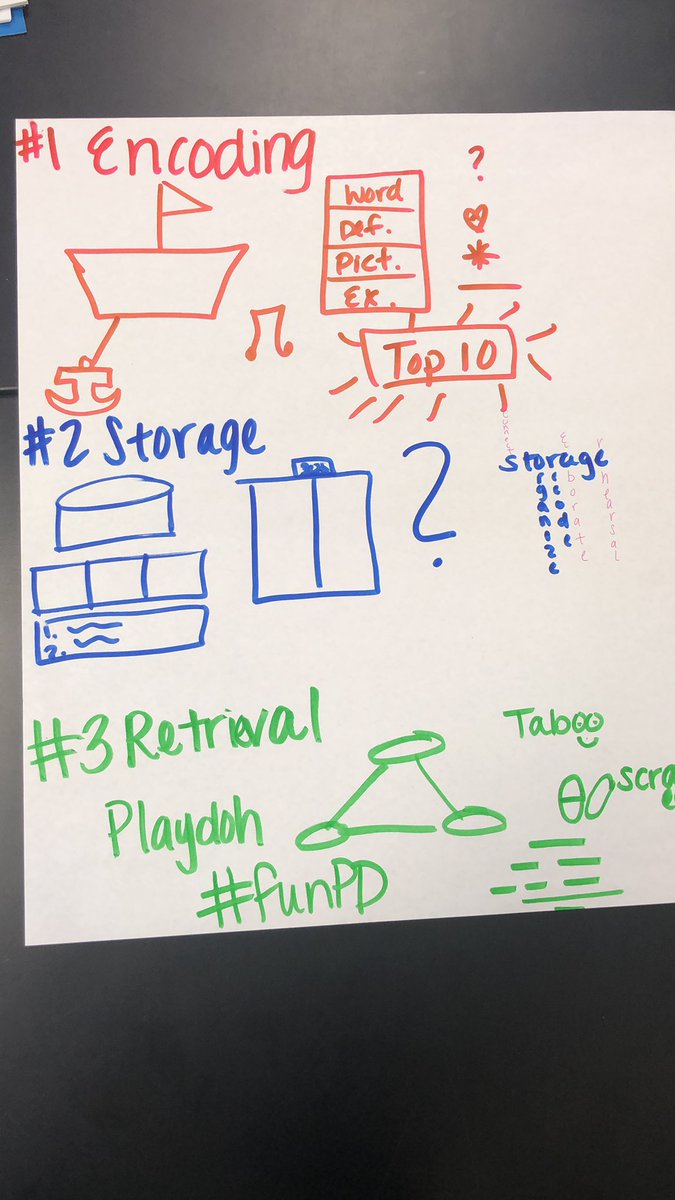 #1 Encoding
?
Word
Def.
Pict.
Ex.
Top 10
#2 Storage
?
connect
storage
organize
recode
rehearsal
1.
2.
#3 Retrieval
Taboo
Playdoh
#funPD